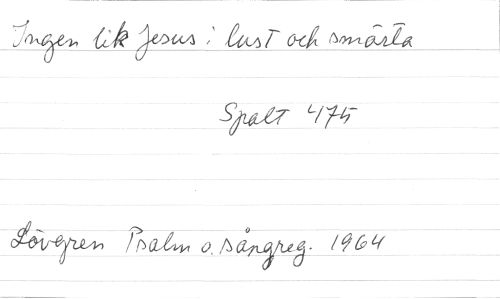 Ingen lik Jesus i lust och smärta
Spalt 475
Lövgren Psalm o. sångreg. 1964